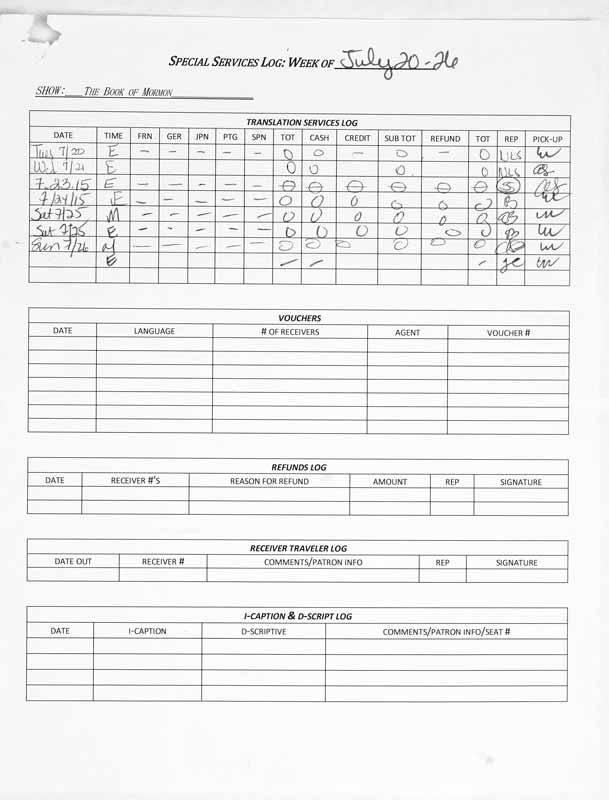 SPECIAL SERVICES LOG: WEEK OF July 20-26
SHOW: THE BOOK OF MORMON
TRANSLATION SERVICES LOG
DATE TIME FRN GER JPN PTG SPN TOT CASH CREDIT SUB TOT REFUND TOT REP PICK-UP
Tues 7/20 E - - - - - 0 0 - 0 - 0 NLS
Wed 7/21 E 0 0 0 0 NLS
7.23.15 E - - - - - 0 0 0 0 0 0 S
7/24/15 E - - - - - 0 0 0 0 0 0
Sat 7/25 M - - - - - 0 0 0 0 0 0
Sat 7/25 E - - - - - 0 0 0 0 0 0
Sun 7/26 M - - - - - 0 0 0 0 0
E - - - JC
VOUCHERS
DATE LANGUAGE # OF RECEIVERS AGENT VOUCHER #
REFUNDS LOG
DATE RECEIVER #'S REASON FOR REFUND AMOUNT REP SIGNATURE
RECEIVER TRAVELER LOG
DATE OUT RECEIVER # COMMENTS/PATRON INFO REP SIGNATURE
I-CAPTION & D-SCRIPT LOG
DATE I-CAPTION D-SCRIPTIVE COMMENTS/PATRON INFO/SEAT #